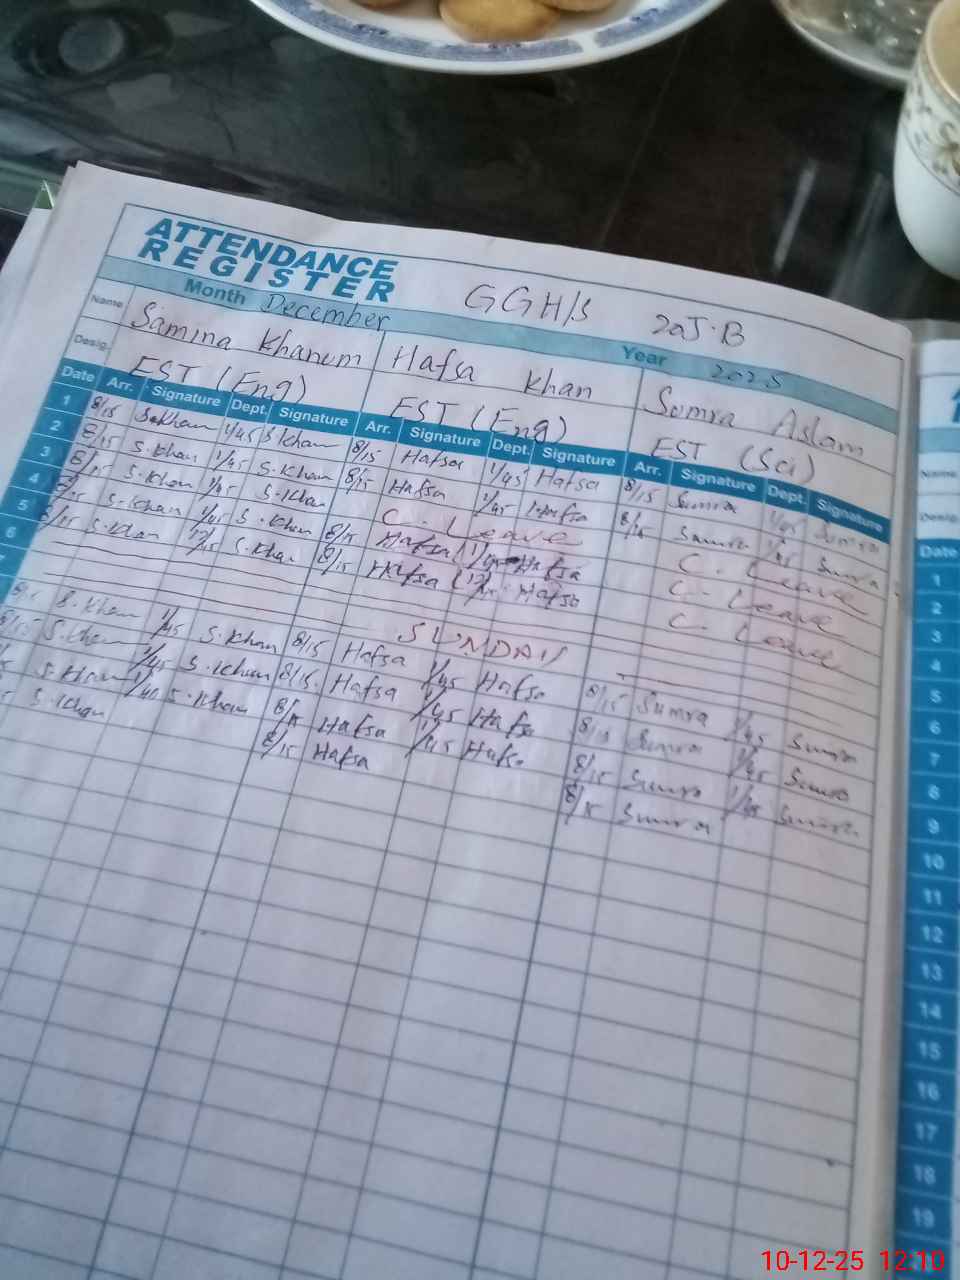 ATTENDANCE
REGISTER
GGH/S 20J.B
Month December Year 2025
Name Samina Khanum Hafsa Khan Sumra Aslam
Desig. EST (Eng) EST (Eng) EST (Sci)
Date Arr. Signature Dept. Signature Arr. Signature Dept. Signature Arr. Signature Dept. Signature
1 8/15 S.Khan 1/45 S.Khan 8/15 Hafsa 1/45 Hafsa 8/15 Sumra 1/45 Sumra
2 8/15 S.Khan 1/45 S.Khan 8/15 Hafsa 1/45 Hafsa 8/15 Sumra 1/45 Sumra
3 8/15 S.Khan 1/45 S.Khan C. Leave C. Leave
4 8/15 S.Khan 1/45 S.Khan 8/15 Hafsa Hafsa C. Leave
5 8/15 S.Khan 12/15 S.Khan 8/15 Hafsa Hafsa C. Leave
6
7 SUNDAY
S.Khan 1/45 S.Khan 8/15 Hafsa 1/45 Hafsa 8/15 Sumra 1/45 Sumra
8/15 S.Khan 1/45 S.Khan 8/15 Hafsa 1/45 Hafsa 8/15 Sumra 1/45 Sumra
S.Khan 1/40 S.Khan 8/15 Hafsa 1/45 Hafsa 8/15 Sumra 1/45 Sumra
S.Khan 8/15 Hafsa 8/15 Sumra
Name
Desig.
Date
1
2
3
4
5
6
7
8
9
10
11
12
13
14
15
16
17
18
19
10-12-25 12:10